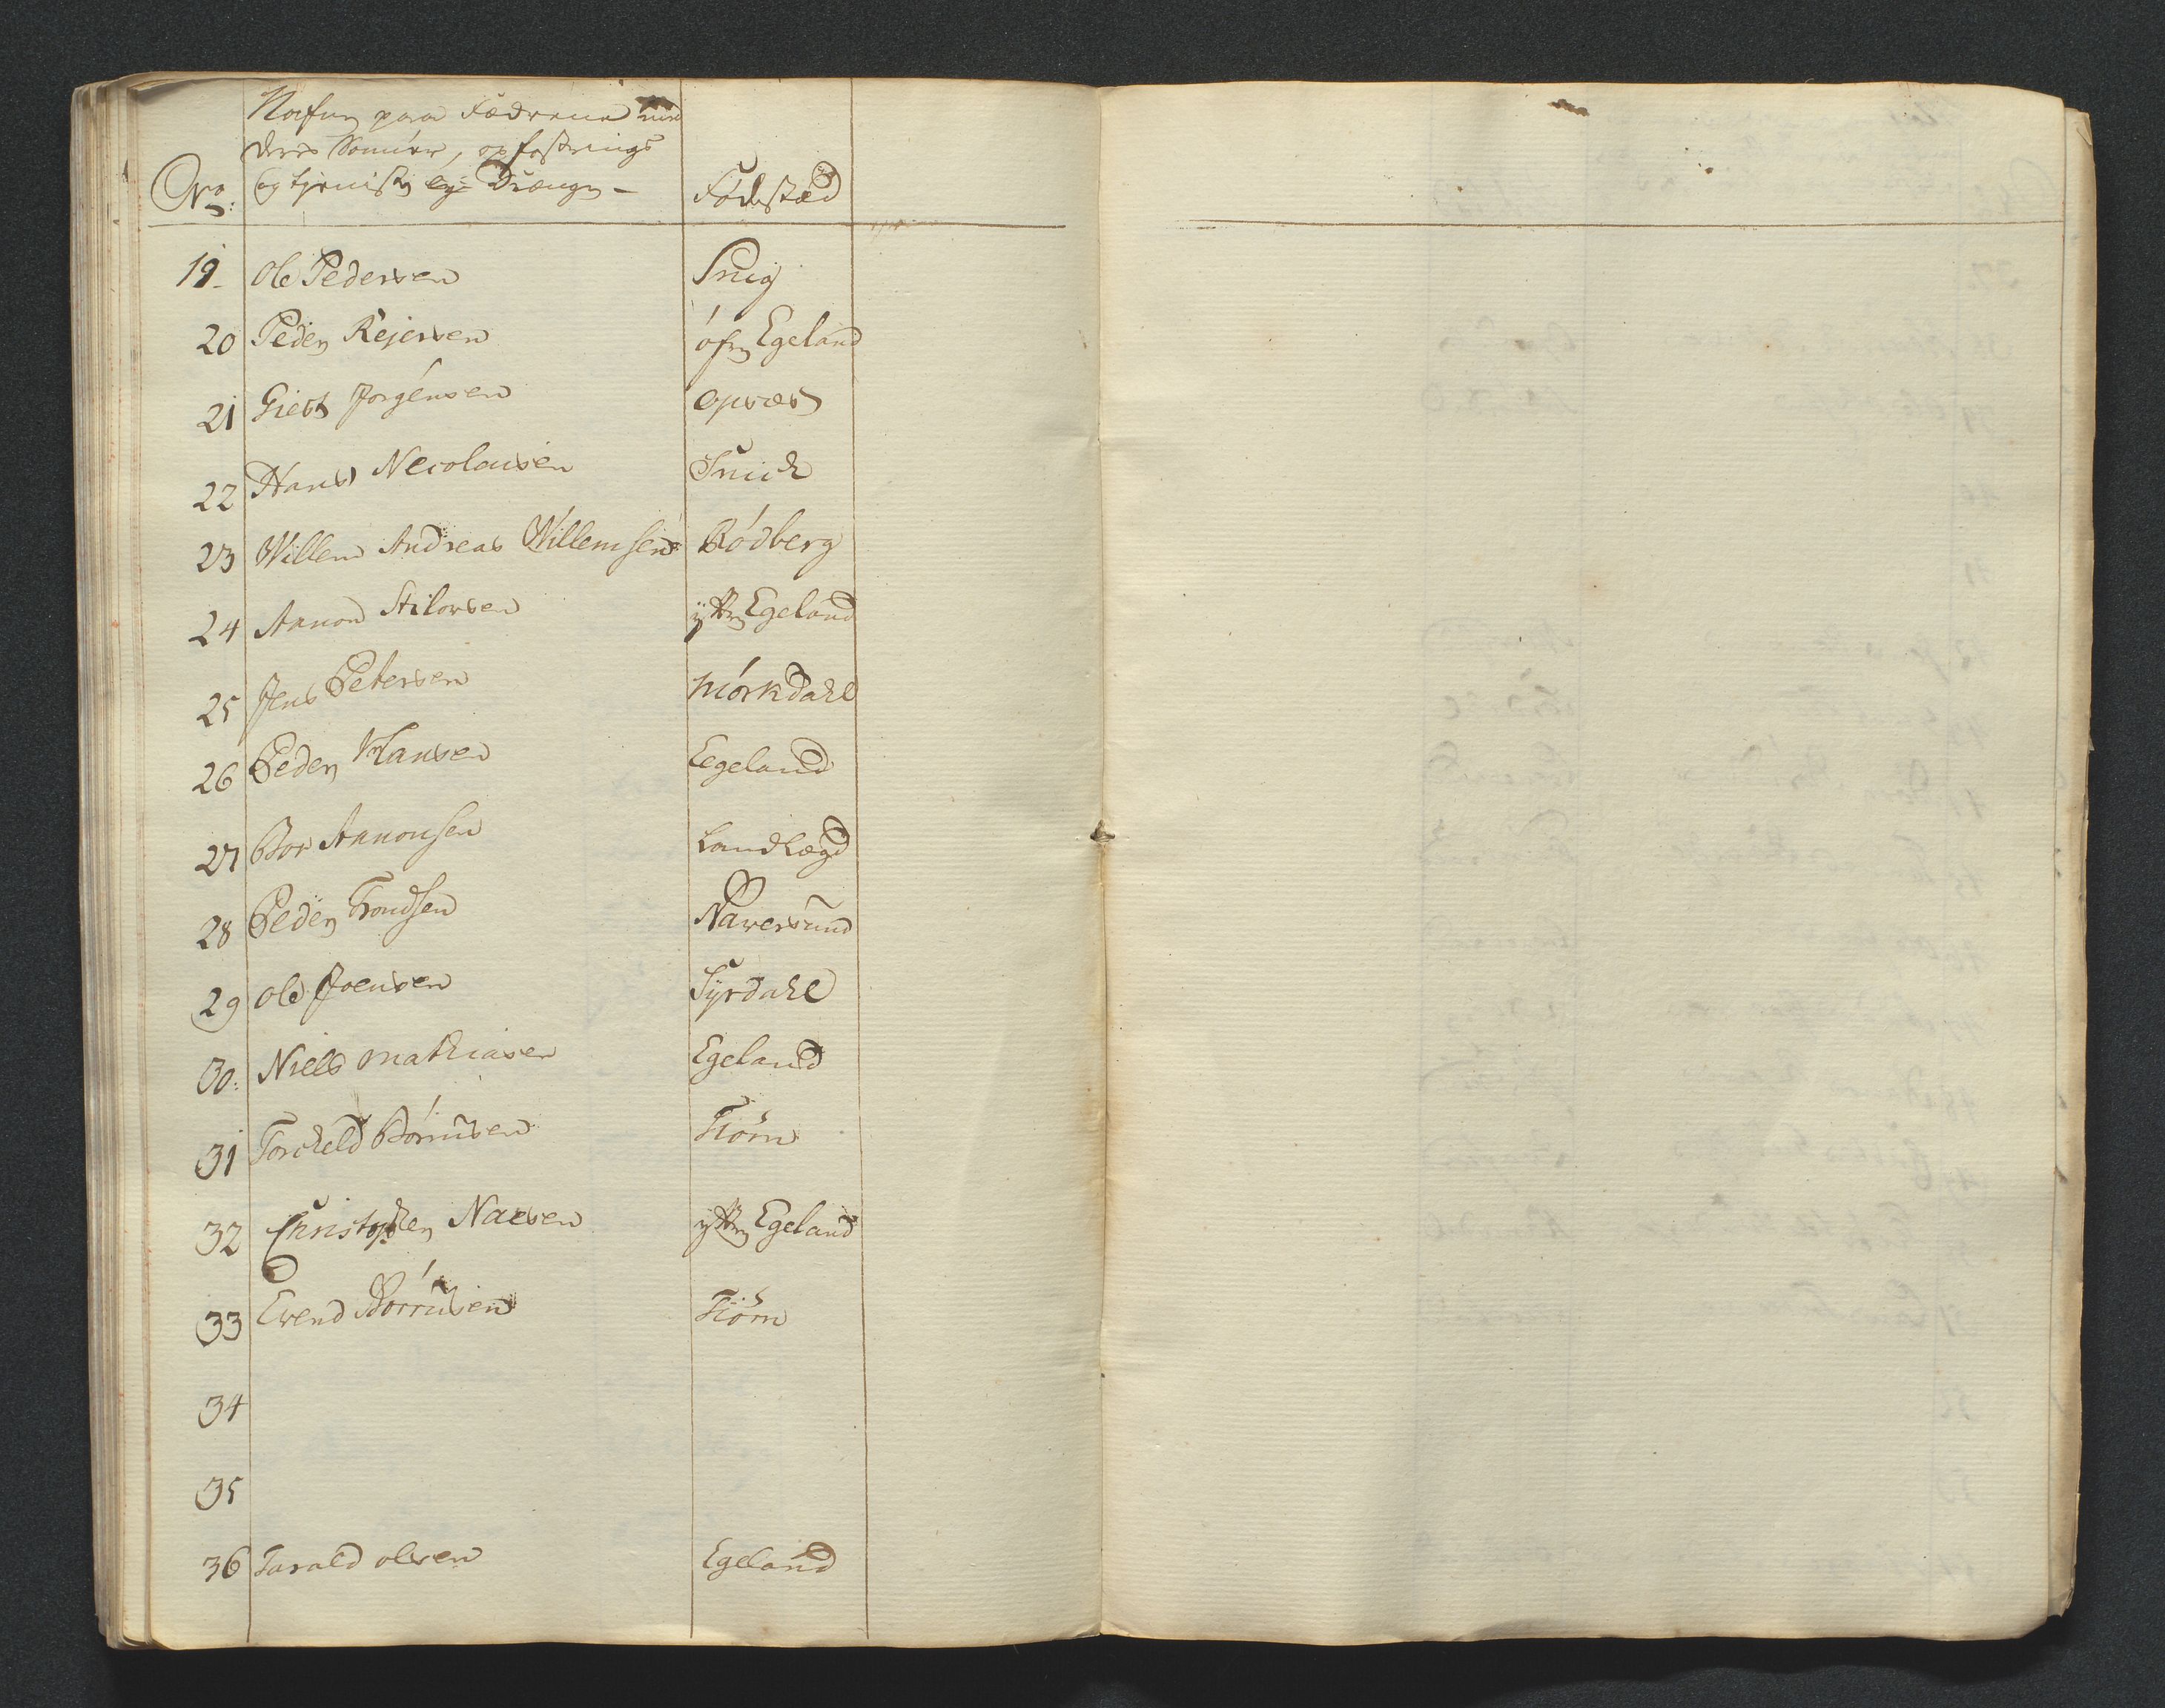 Nafn paa Fædrene
deres Sönner, opfostrings
No: og tieniste Drænge - Födestæd
19. Ole Pedersen Snig
20 Peder Rejersen öfr Egeland
21 Giert Jörgensen Opsæt
22 Hans Necolaisen Snick
23 Willem Andreas Willemsen Rödberg
24 Aanon Atlorsen ÿttr Egeland
25 Jens Petersen Mörkdahl
26 Peder Hansen Eegeland
27 Bor Aanonsen Landlægd
28 Peder Trondsen Nawersund
29 Ole Joensen Syrdahl
30: Niels Mathiasen Egeland
31 Torckeld Börrüsen Tiörn
32 Christopher Naesen ÿttr Egeland
33 Evend Börrüsen Tiörn
34
35
36 Tarald olesen Egeland